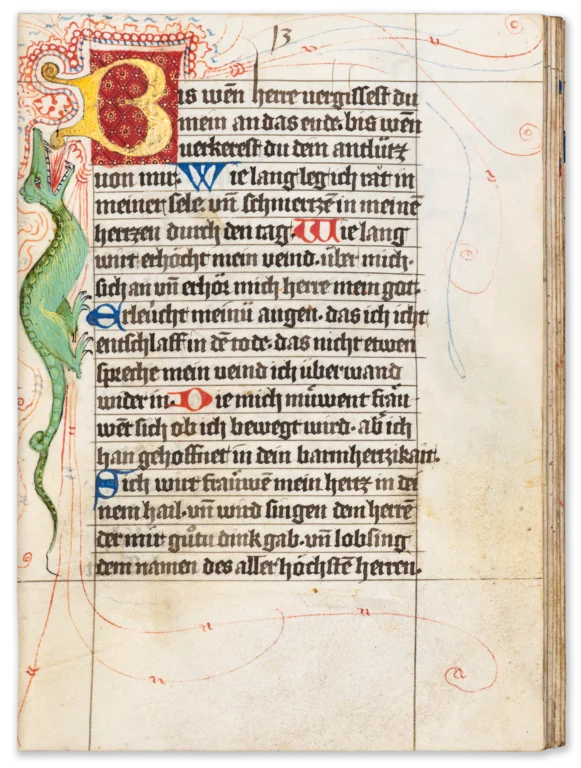 13
Bis wēn herre vergissest du
mein an das ende bis wēn
verkerest du dein antlütz
von mir· Wie lang leg ich rǎt in
meiner sele· vn̄ schmertzē in meinē
hertzen durch den tag· Wie lang
wirt erhöcht mein veind· über mich·
sich an vn̄ erhör mich herre mein got·
Erleücht meinü augen· das ich icht
entschlaff in dē tode· das nicht etwen
spreche mein veind ich überwand
wider in· Die mich müwent fräu
wēt sich ob ich bewegt wird· ab̄ ich
han gehoffnet in dein barmhertzikait·
Sich wirt fräuwē mein hertz in dei
nem hail· vn̄ wird singen dem herrē
der mir gůtü dink gab· vn̄ lobsing
dem namen des aller höchstē herren·